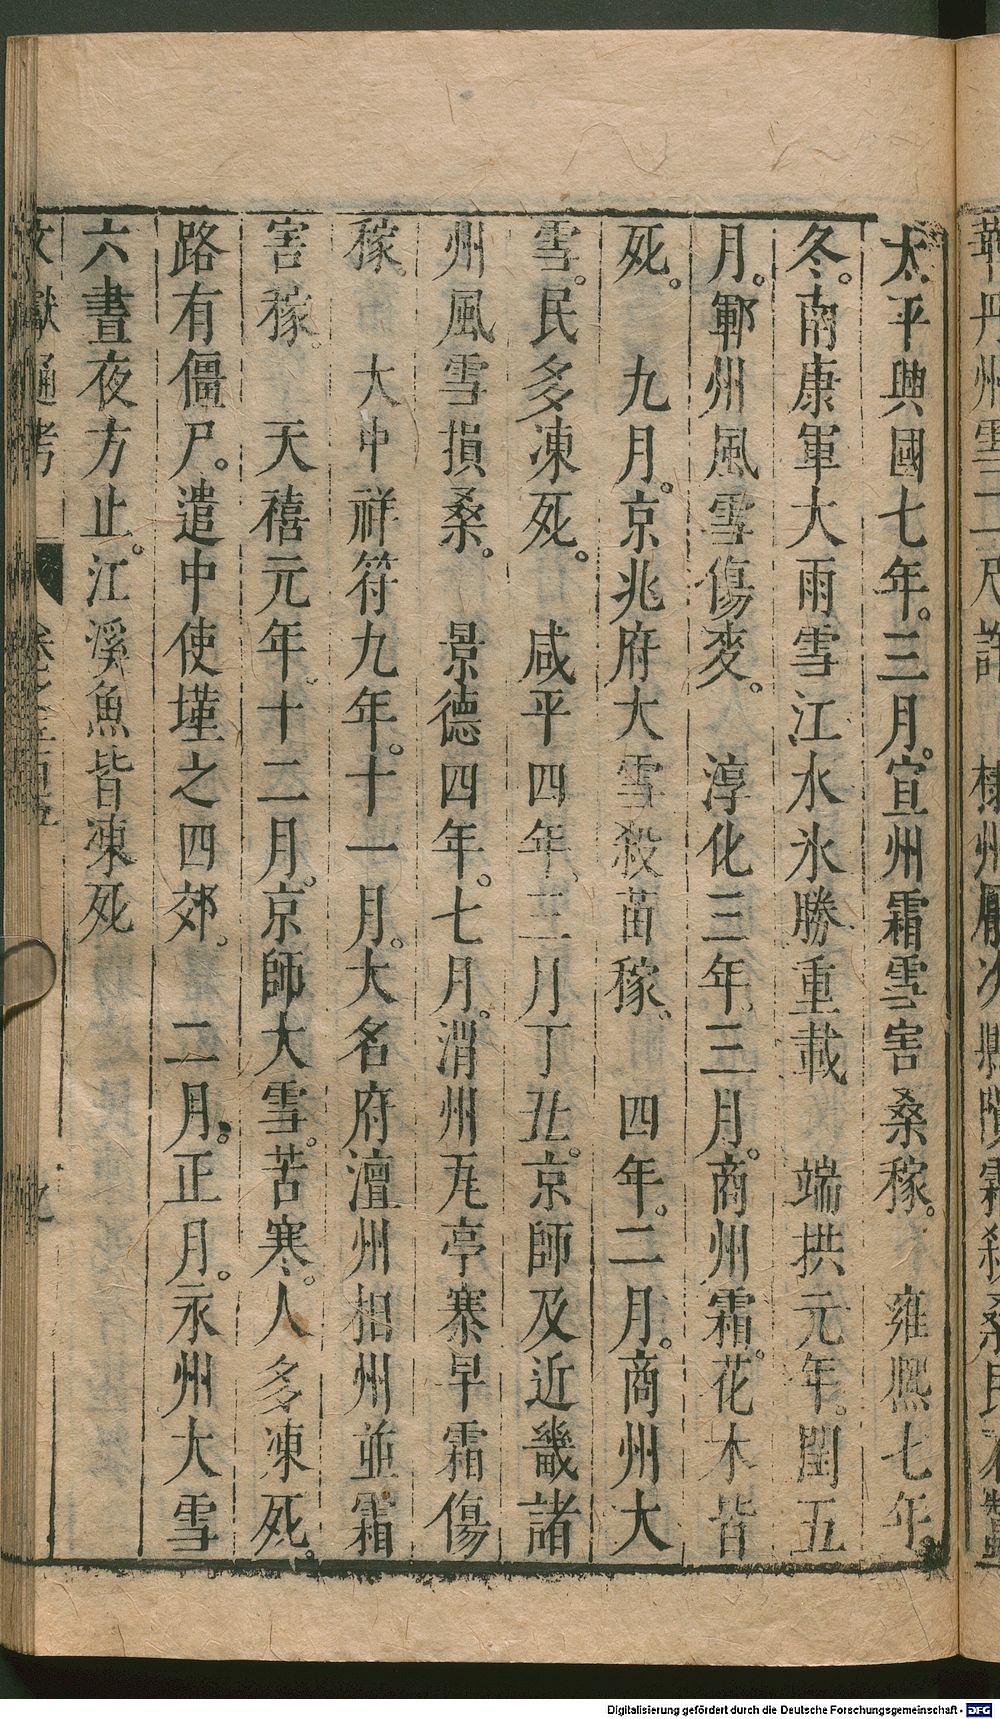 太平興國七年。三月。宣州霜雪害桑稼。　雍熙七年。
冬。南康軍大雨雪江水氷勝重載　端拱元年。閏五
月。鄆州風雪傷麥。　淳化三年。三月。商州霜。花木皆
死。　九月。京兆府大雪殺苗稼。　四年。二月。商州大
雪。民多凍死。　咸平四年。三月丁丑。京師及近畿諸
州風雪損桑。　景德四年。七月。渭州瓦亭寨早霜傷
稼。　大中祥符九年。十一月。大名府澶州相州並霜
害稼。　天禧元年。十二月。京師大雪。苦寒。人多凍死。
路有僵尸。遣中使墐之四郊。　二月。正月。永州大雪
六晝夜方止。江溪魚皆凍死
文獻通考　卷之三百五
Digitalisierung gefördert durch die Deutsche Forschungsgemeinschaft - DFG